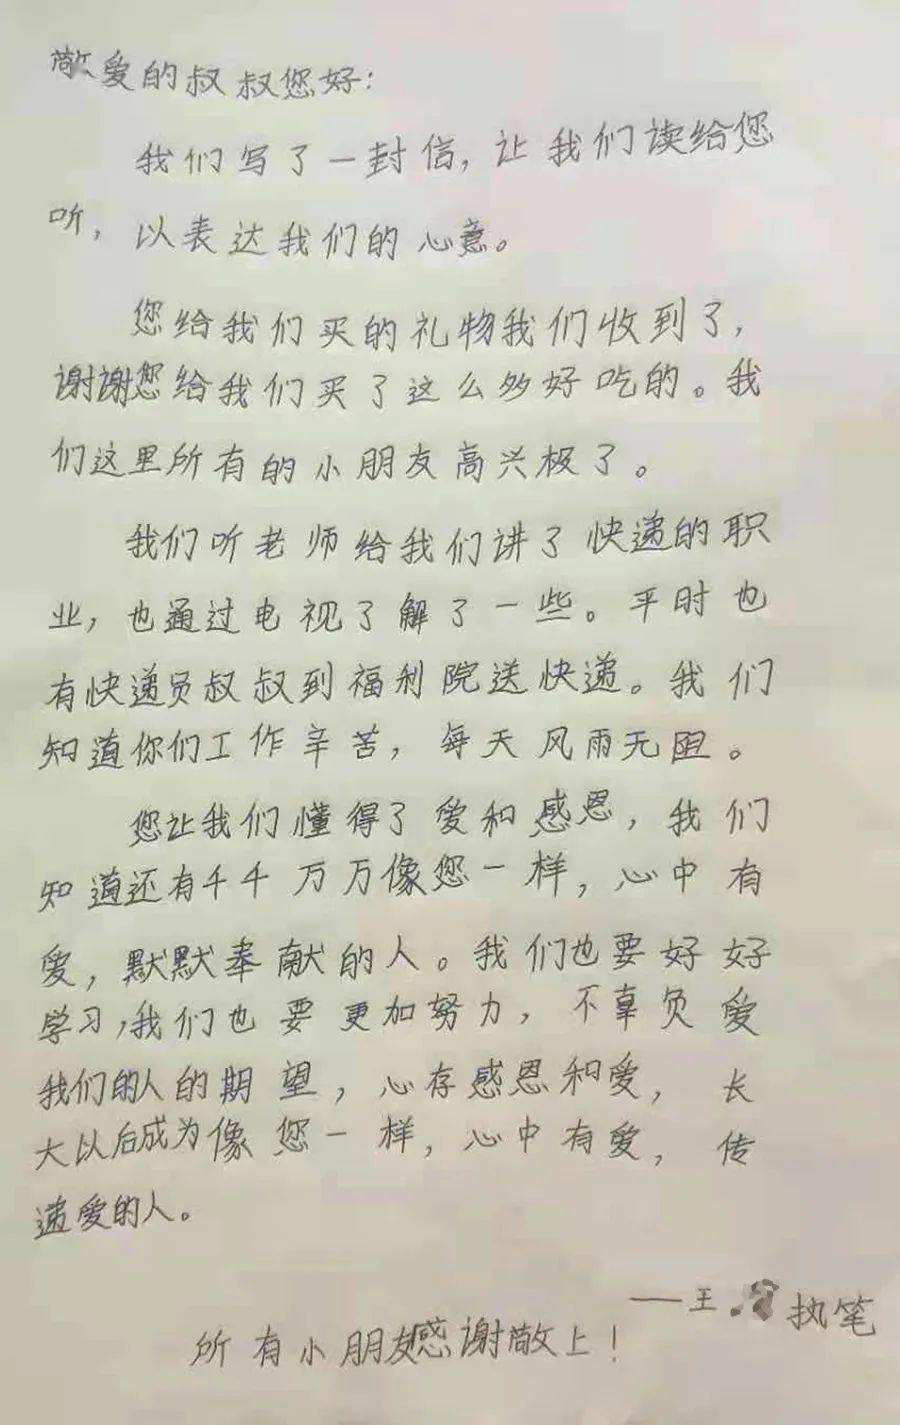 敬爱的叔叔您好：
我们写了一封信，让我们读给您
听，以表达我们的心意。
您给我们买的礼物我们收到了，
谢谢您给我们买了这么多好吃的。我
们这里所有的小朋友高兴极了。
我们听老师给我们讲了快递的职
业，也通过电视了解了一些。平时也
有快递员叔叔到福利院送快递。我们
知道你们工作辛苦，每天风雨无阻。
您让我们懂得了爱和感恩，我们
知道还有千千万万像您一样，心中有
爱，默默奉献的人。我们也要好好
学习，我们也要更加努力，不辜负爱
我们的人的期望，心存感恩和爱，长
大以后成为像您一样，心中有爱，传
递爱的人。
——王 执笔
所有小朋友感谢敬上！